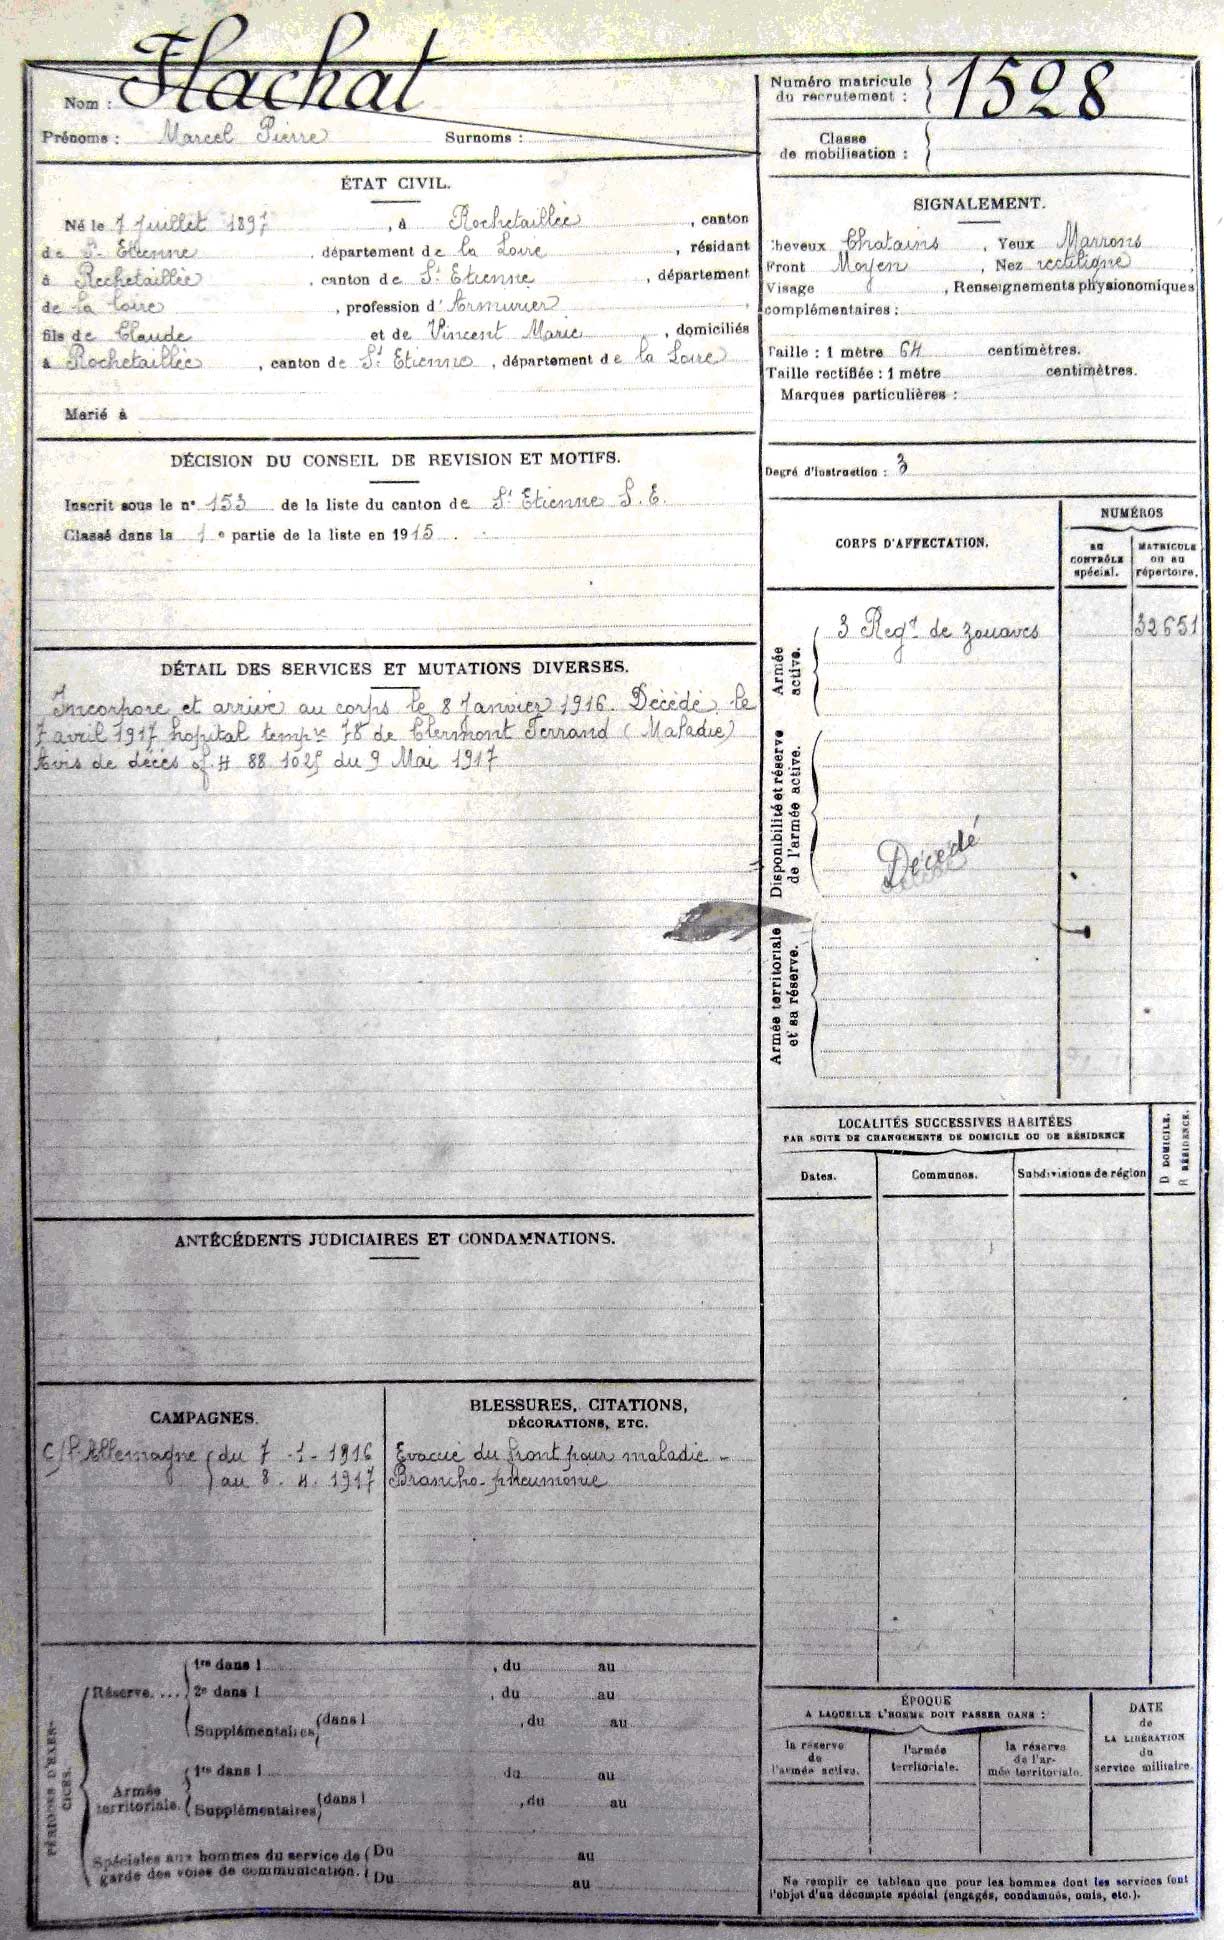 Nom : Flachat
Prénoms : Marcel Pierre Surnoms :
Numéro matricule du recrutement : 1528
Classe de mobilisation :
ÉTAT CIVIL.
Né le 7 Juillet 1897, à Rochetaillée, canton
de St Etienne, département de la Loire, résidant
à Rochetaillée, canton de St Etienne, département
de la Loire, profession d'Armurier
fils de Claude et de Vincent Marie, domiciliés
à Rochetaillée, canton de St Etienne, département de la Loire
Marié à
SIGNALEMENT.
Cheveux Chatains, Yeux Marrons
Front Moyen, Nez rectiligne
Visage, Renseignements physionomiques
complémentaires :
Taille : 1 mètre 64 centimètres.
Taille rectifiée : 1 mètre centimètres.
Marques particulières :
Degré d'instruction : 3
DÉCISION DU CONSEIL DE REVISION ET MOTIFS.
Inscrit sous le n° 153 de la liste du canton de St Etienne S. E.
Classé dans la 1e partie de la liste en 1915.
CORPS D'AFFECTATION.
NUMÉROS
au CONTRÔLE spécial.
MATRICULE ou au répertoire.
Armée active.
3 Regt de zouaves 32651
Disponibilité et réserve de l'armée active.
Décédé
Armée territoriale et sa réserve.
DÉTAIL DES SERVICES ET MUTATIONS DIVERSES.
Incorporé et arrivé au corps le 8 Janvier 1916. Décédé le
7 avril 1917 hopital tempre 78 de Clermont Ferrand (Maladie)
Avis de décès of. H 88 1025 du 9 Mai 1917
LOCALITÉS SUCCESSIVES HABITÉES
PAR SUITE DE CHANGEMENTS DE DOMICILE OU DE RÉSIDENCE
Dates.
Communes.
Subdivisions de région
D DOMICILE.
R RÉSIDENCE.
ANTÉCÉDENTS JUDICIAIRES ET CONDAMNATIONS.
CAMPAGNES.
C/ l'Allemagne du 7 - 1 - 1916
au 8. 4. 1917
BLESSURES, CITATIONS,
DÉCORATIONS, ETC.
Evacué du front pour maladie -
Broncho-pneumonie
PÉRIODES D'EXERCICES.
Réserve....
1re dans l , du au
2e dans l , du au
Supplémentaires (dans l , du au
Armée territoriale.
1re dans l du au
Supplémentaires (dans l , du au
Spéciales aux hommes du service de garde des voies de communication.
Du au
Du au
ÉPOQUE
A LAQUELLE L'HOMME DOIT PASSER DANS :
la réserve de l'armée active.
l'armée territoriale.
la réserve de l'armée territoriale.
DATE
de
LA LIBÉRATION
du
service militaire.
Ne remplir ce tableau que pour les hommes dont les services font
l'objet d'un décompte spécial (engagés, condamnés, omis, etc.).